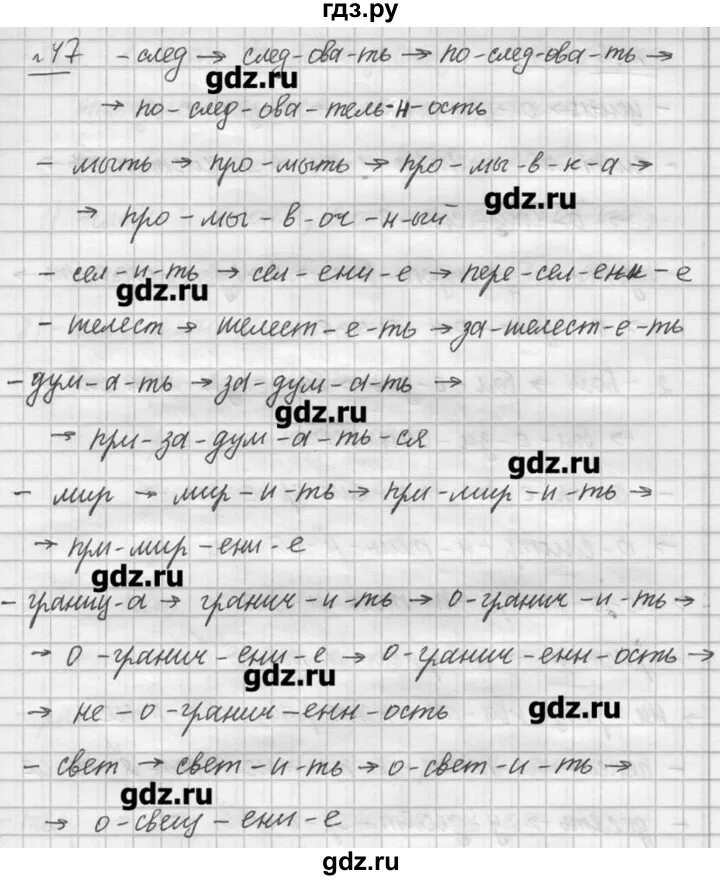 гдз.ру
№47 - след → след-ова-ть → по-след-ова-ть →
gdz.ru
→ по-след-ова-тель-н-ость
- мыть → про-мыть → про-мы-в-к-а →
gdz.ru
→ про-мы-в-оч-н-ый
- сел-и-ть → сел-ени-е → пере-сел-ени-е
gdz.ru
- шелест → шелест-е-ть → за-шелест-е-ть
- дум-а-ть → за-дум-а-ть →
gdz.ru
→ при-за-дум-а-ть-ся
gdz.ru
- мир → мир-и-ть → при-мир-и-ть →
→ при-мир-ени-е
gdz.ru
- границ-а → гранич-и-ть → о-гранич-и-ть →
→ о-гранич-ени-е → о-гранич-енн-ость →
gdz.ru
→ не-о-гранич-енн-ость
gdz.ru
- свет → свет-и-ть → о-свет-и-ть →
gdz.ru
→ о-свещ-ени-е
gdz.ru